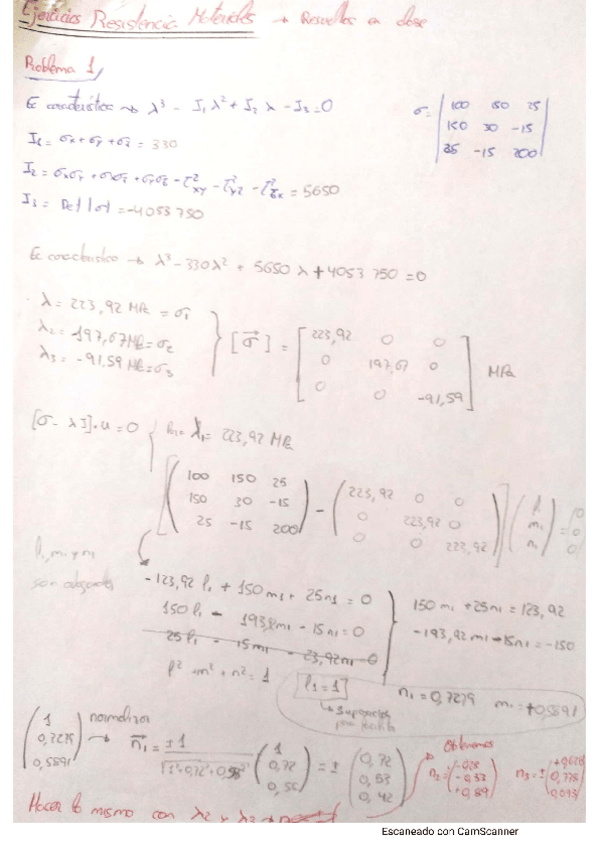 Ejercicios Resistencia Materiales → Resueltos en clase
Problema 1
Ec característica → λ³ - I₁ λ² + I₂ λ - I₃ = 0
σ = | 100 150 25 |
| 150 30 -15 |
| 25 -15 200 |
I₁ = σx + σy + σz = 330
I₂ = σxσy + σxσz + σyσz - τ²xy - τ²yz - τ²zx = 5650
I₃ = Det |σ| = -4053 750
Ec característica → λ³ - 330λ² + 5650 λ + 4053 750 = 0
λ = 223,92 MPa = σ₁
λ₂ = 197,67 MPa = σ₂
λ₃ = -91,59 MPa = σ₃
[σ] = [ 223,92 0 0
0 197,67 0
0 0 -91,59 ] MPa
[σ - λI]·u = 0
λ₁ = 223,92 MPa
[( 100 150 25
150 30 -15
25 -15 200 ) - ( 223,92 0 0
0 223,92 0
0 0 223,92 )] ( l₁
m₁
n₁ ) = ( 0
0
0 )
l₁, m₁ y n₁
son
-123,92 l₁ + 150 m₁ + 25 n₁ = 0
150 l₁ - 193,92 m₁ - 15 n₁ = 0
25 l₁ - 15 m₁ - 23,92 n₁ = 0
l² + m² + n² = 1
150 m₁ + 25 n₁ = 123,92
-193,92 m₁ - 15 n₁ = -150
l₁ = 1
n₁ = 0,7279 m₁ = +0,5891
( 1
0,7279
0,5891 ) normalizar → n₁ = ±1 / √(1² + 0,72² + 0,58²) ( 1
0,72
0,58 ) = ± ( 0,72
0,53
0,42 )
Obtenemos
n₂ =
-0,53
+0,89
n₃ = ±
0,778
Hacer lo mismo con λ₂ y λ₃
Escaneado con CamScanner